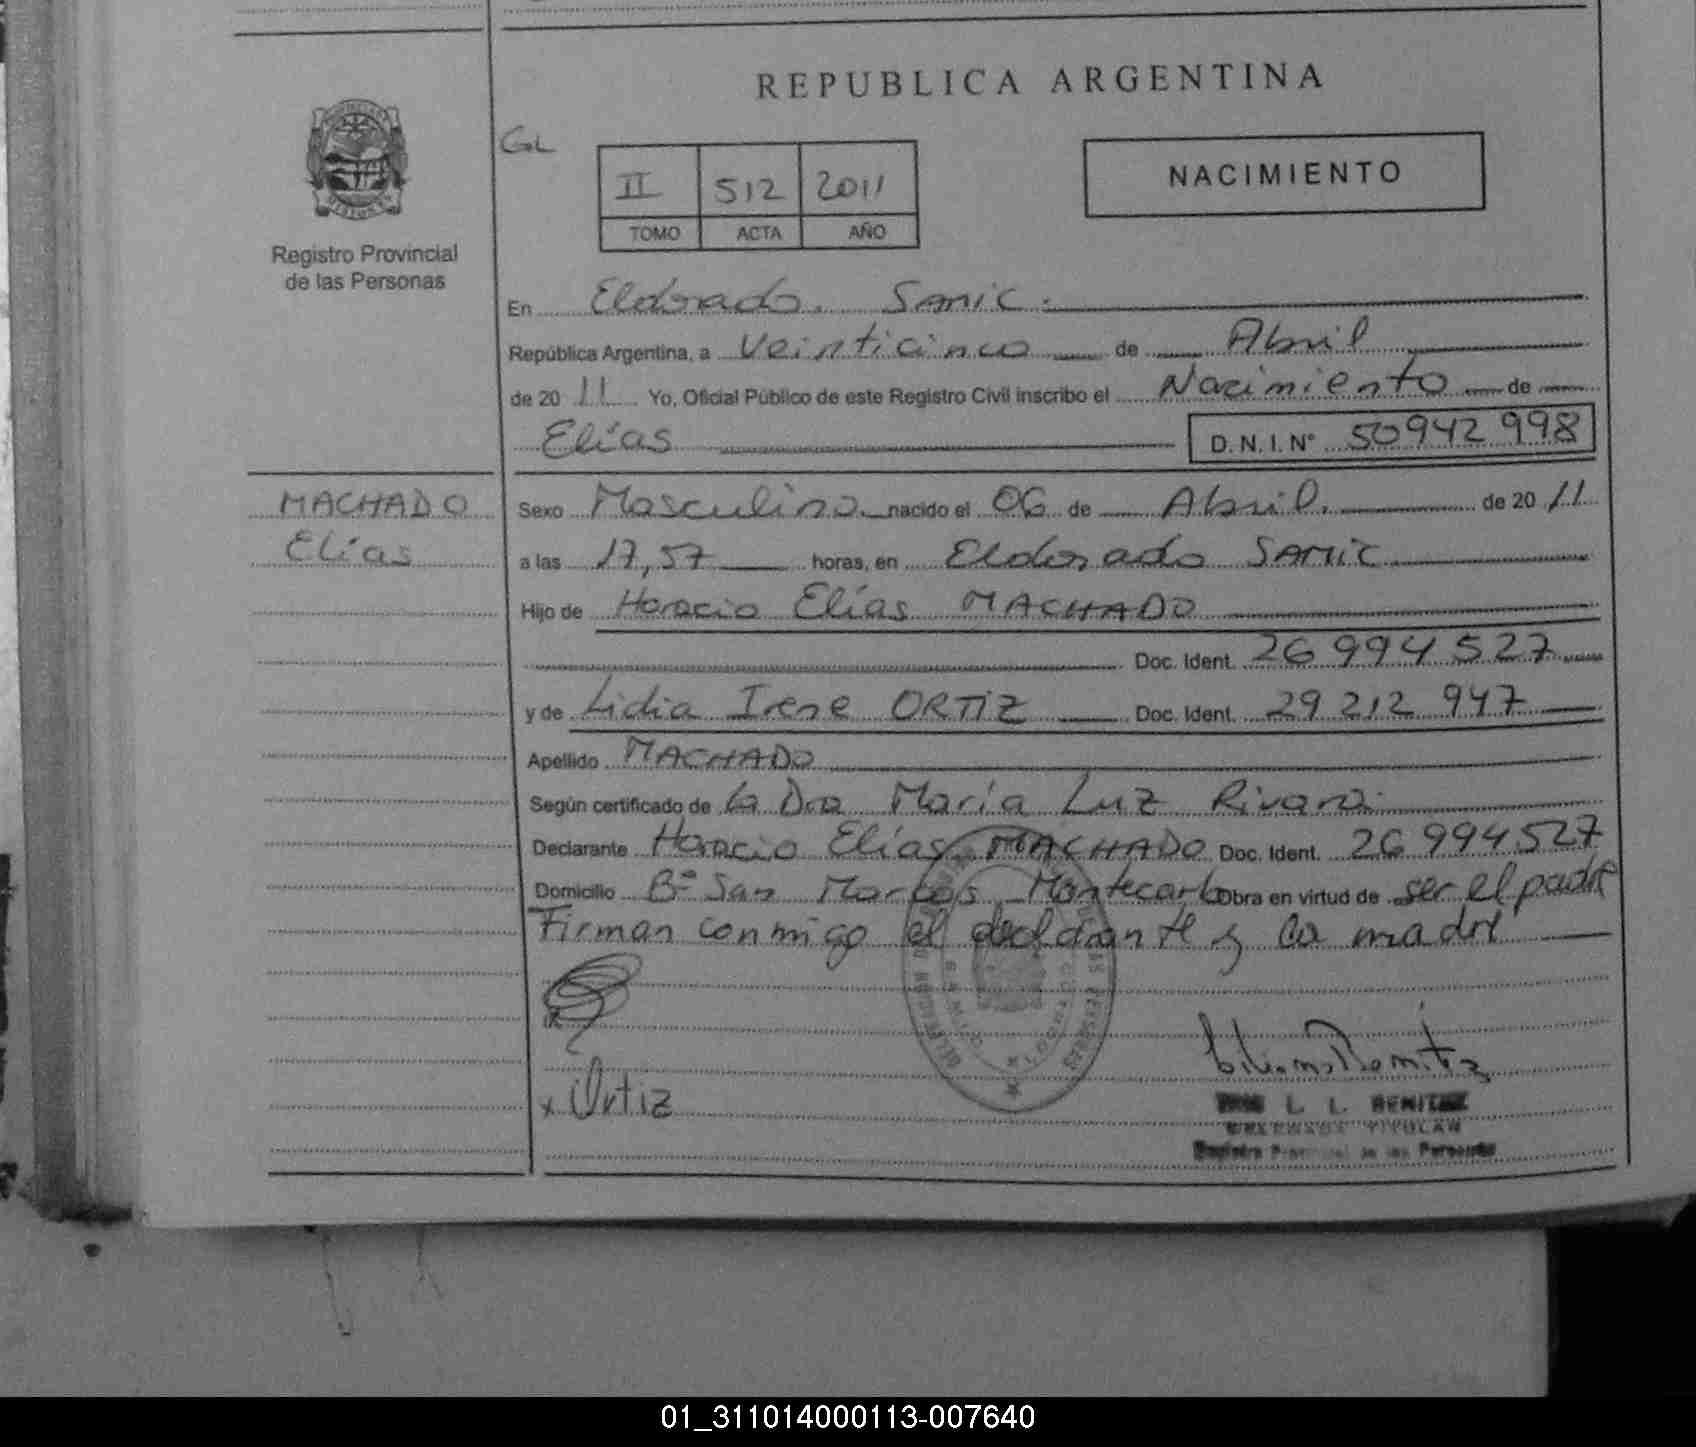 REPUBLICA ARGENTINA
GL
II 512 2011
TOMO ACTA AÑO
NACIMIENTO
Registro Provincial
de las Personas
En Eldorado. Samic.
República Argentina, a Veinticinco de Abril
de 2011 Yo, Oficial Público de este Registro Civil inscribo el Nacimiento de
Elías D.N.I. N° 50942998
MACHADO
Elías
Sexo Masculino nacido el 06 de Abril. de 2011
a las 17,57 horas, en Eldorado SAMIC
Hijo de Horacio Elías MACHADO
Doc. Ident. 26994527
y de Lidia Irene ORTIZ Doc. Ident. 29212947
Apellido MACHADO
Según certificado de la Dra María Luz Rivara.
Declarante Horacio Elías MACHADO Doc. Ident. 26994527
Domicilio Bº San Marcos Montecarlo Obra en virtud de ser el padre
Firman conmigo el declarante y la madre
x Ortiz
L. L. BENITEZ
DELEGADA TITULAR
Registro Provincial de las Personas
01_311014000113-007640